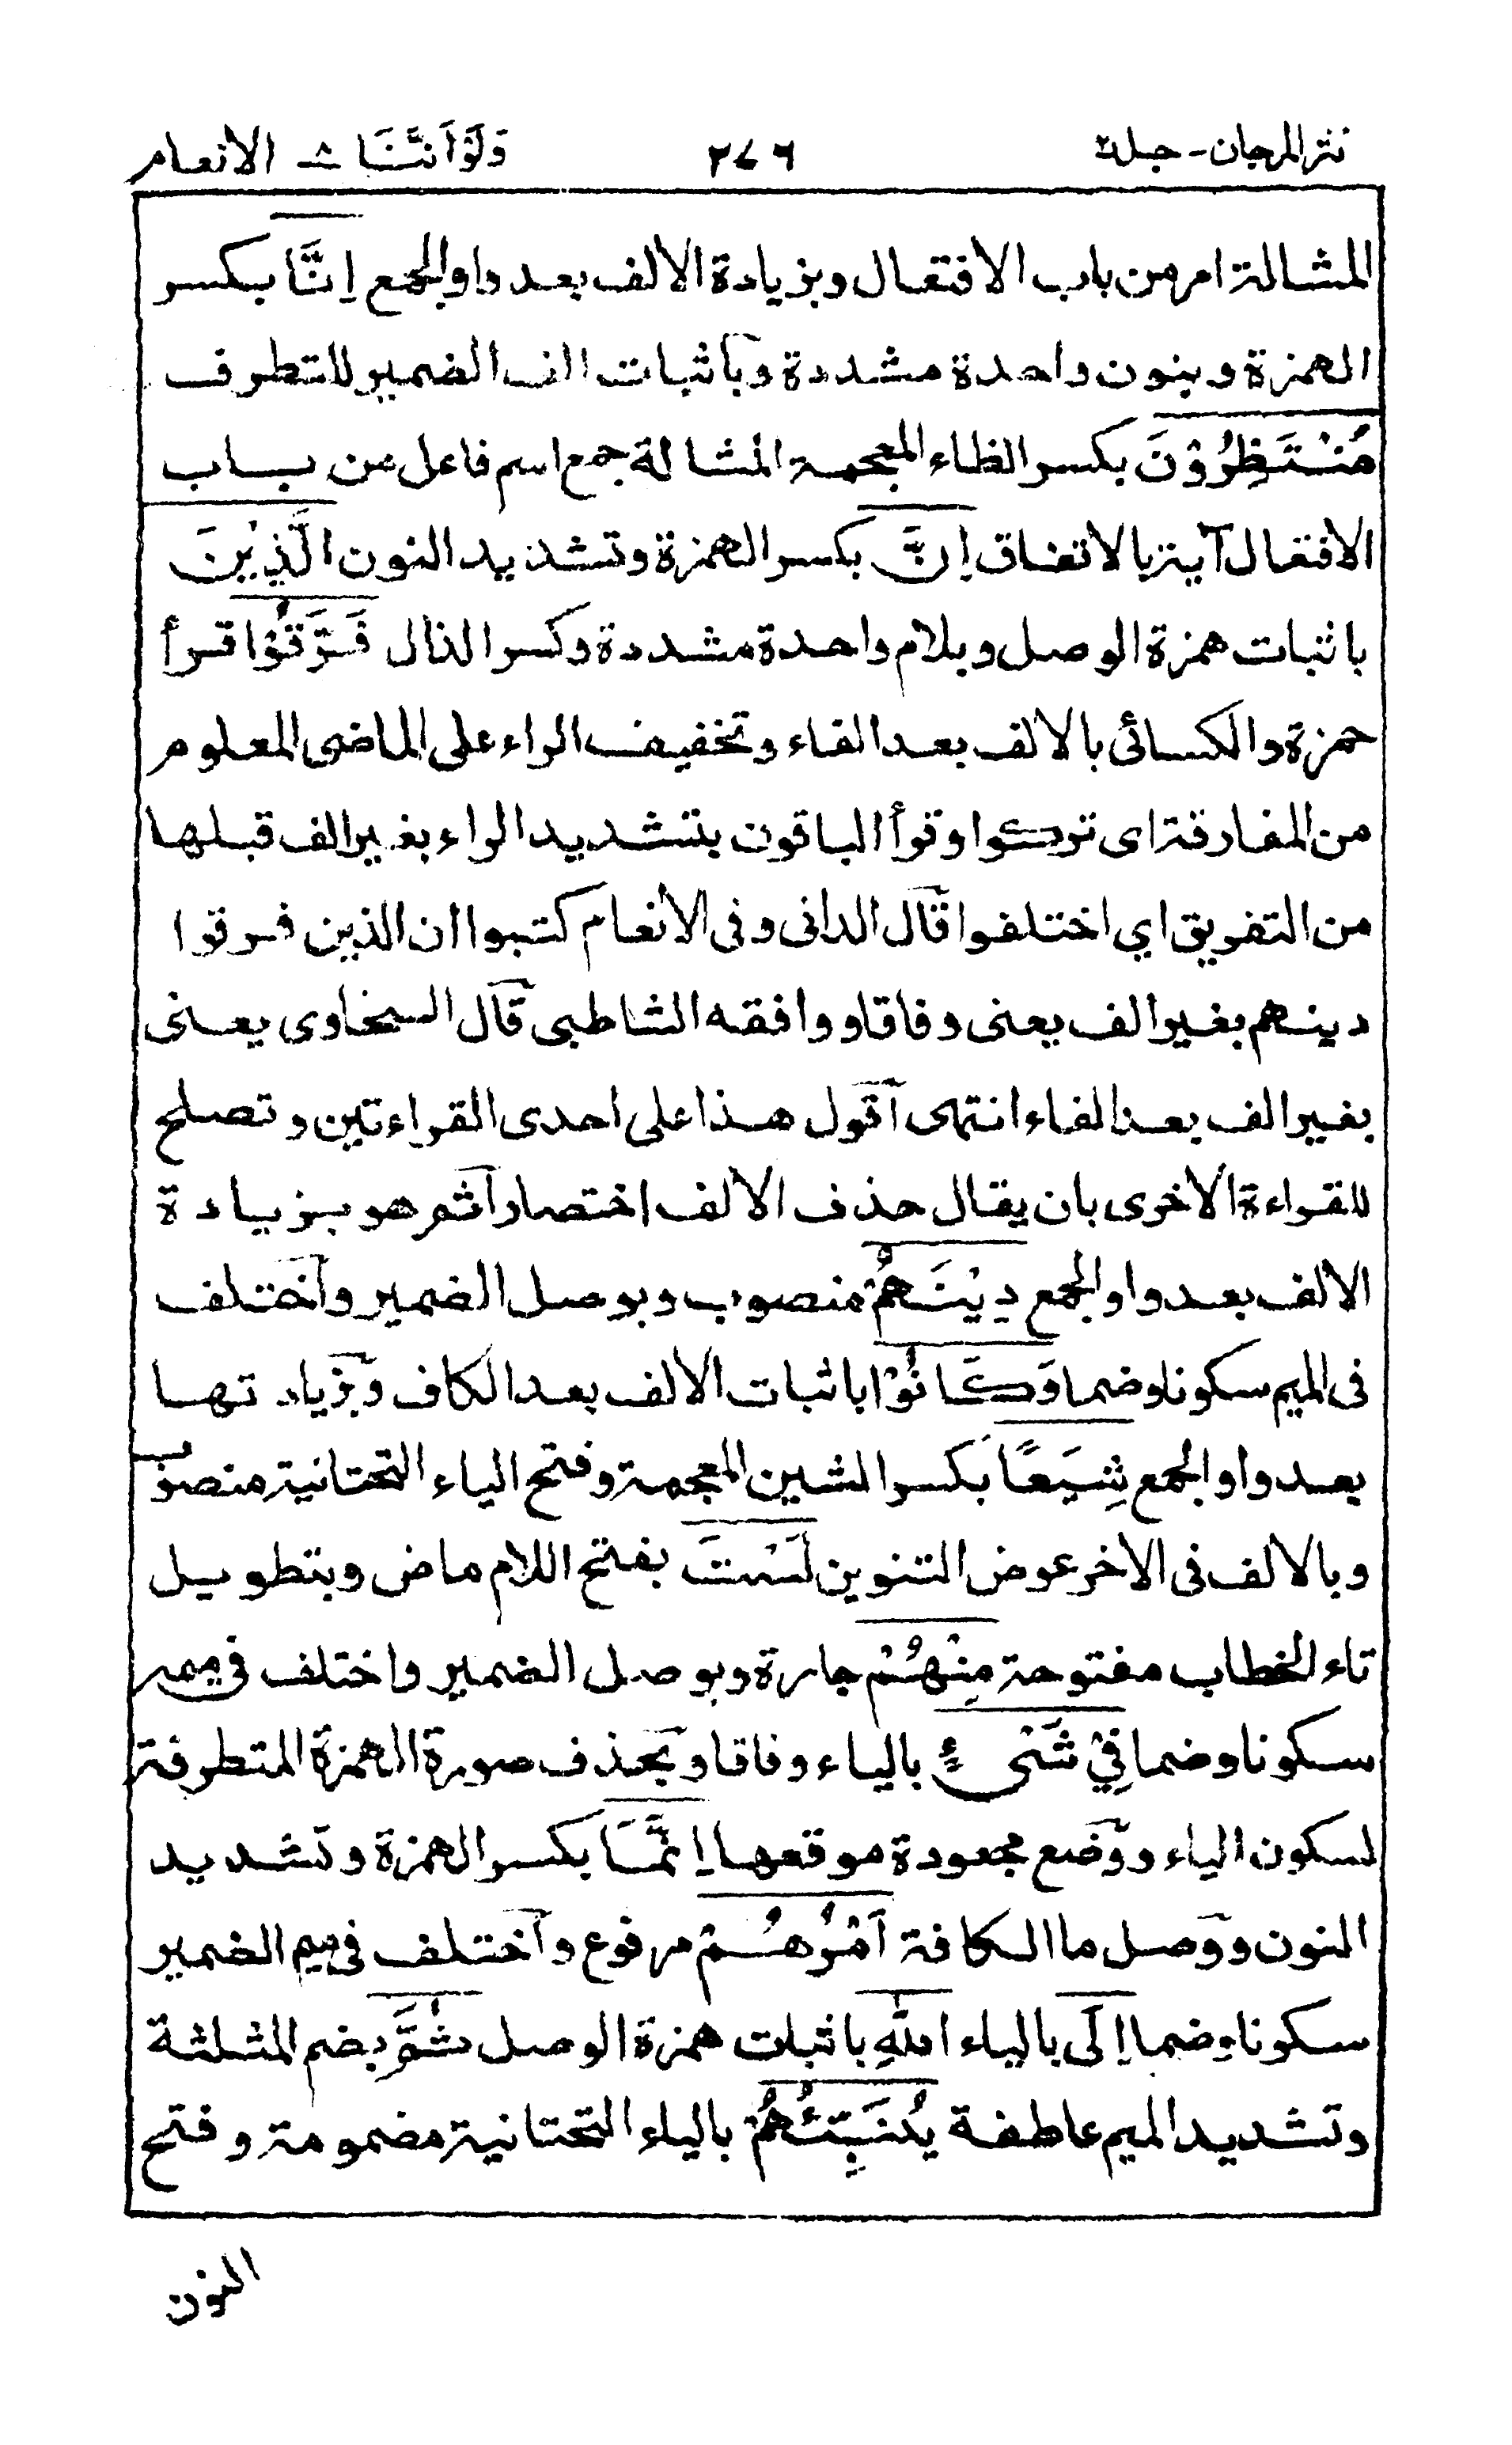 نثر المرجان - جلد ٢٧٦ وَلَوْ اَنَّنَا ٨ الانعام
المشالة امر من باب الافتعال وبزيادة الالف بعد واو الجمع اِنَّا بكسر
الهمزة وبنون واحدة مشددة وبآثبات الف الضمير للتطرف
مُنْتَظِرُوْنَ بكسر الظاء المعجمة المشالة جمع اسم فاعل من باب
الافتعال آية بالاتفاق اِنَّ بكسر الهمزة وتشديد النون الَّذِيْنَ
باثبات همزة الوصل وبلام واحدة مشددة وكسر الذال فَرَّقُوْا قرأ
حمزة والكسائى بالالف بعد الفاء وتخفيف الراء على الماضى المعلوم
من المفارقة اى تركوا وقرأ الباقون بتشديد الراء بغير الف قبلها
من التفريق اي اختلفوا قآل الدانى وفى الانعام كتبوا ان الذين فرقوا
دينهم بغير الف يعنى وفاقا ووافقه الشاطبى قآل السخاوى يعنى
بغير الف بعد الفاء انتهى آقول هذا على احدى القراءتين وتصلح
للقراءة الاخرى بان يقال حذف الالف اختصارا آثم هو بزيادة
الالف بعد واو الجمع دِيْنَهُمْ منصوب وبوصل الضمير وآختلف
فى الميم سكونا وضما وَكَانُوْا باثبات الالف بعد الكاف وبزيادتها
بعد واو الجمع شِيَعًا بكسر الشين المعجمة وفتح الياء التحتانية منصوب
وبالالف فى الاخر عوض التنوين لَسْتَ بفتح اللام ماض وبتطويل
تاء الخطاب مفتوحة مِنْهُمْ جارة وبوصل الضمير واختلف فى ميمه
سكونا وضما فِيْ شَىْءٍ بالياء وفاقا وبحذف صورة الهمزة المتطرفة
لسكون الياء ووضع مجعودة موقعها اِنَّمَا بكسر الهمزة وتشديد
النون ووصل ما الكافة اَمْرُهُمْ مرفوع وآختلف فى ميم الضمير
سكونا وضما اِلَى بالياء اللّٰهِ باثبات همزة الوصل ثُمَّ بضم المثلثة
وتشديد الميم عاطفة يُنَبِّئُهُمْ بالياء التحتانية مضمومة وفتح
النون